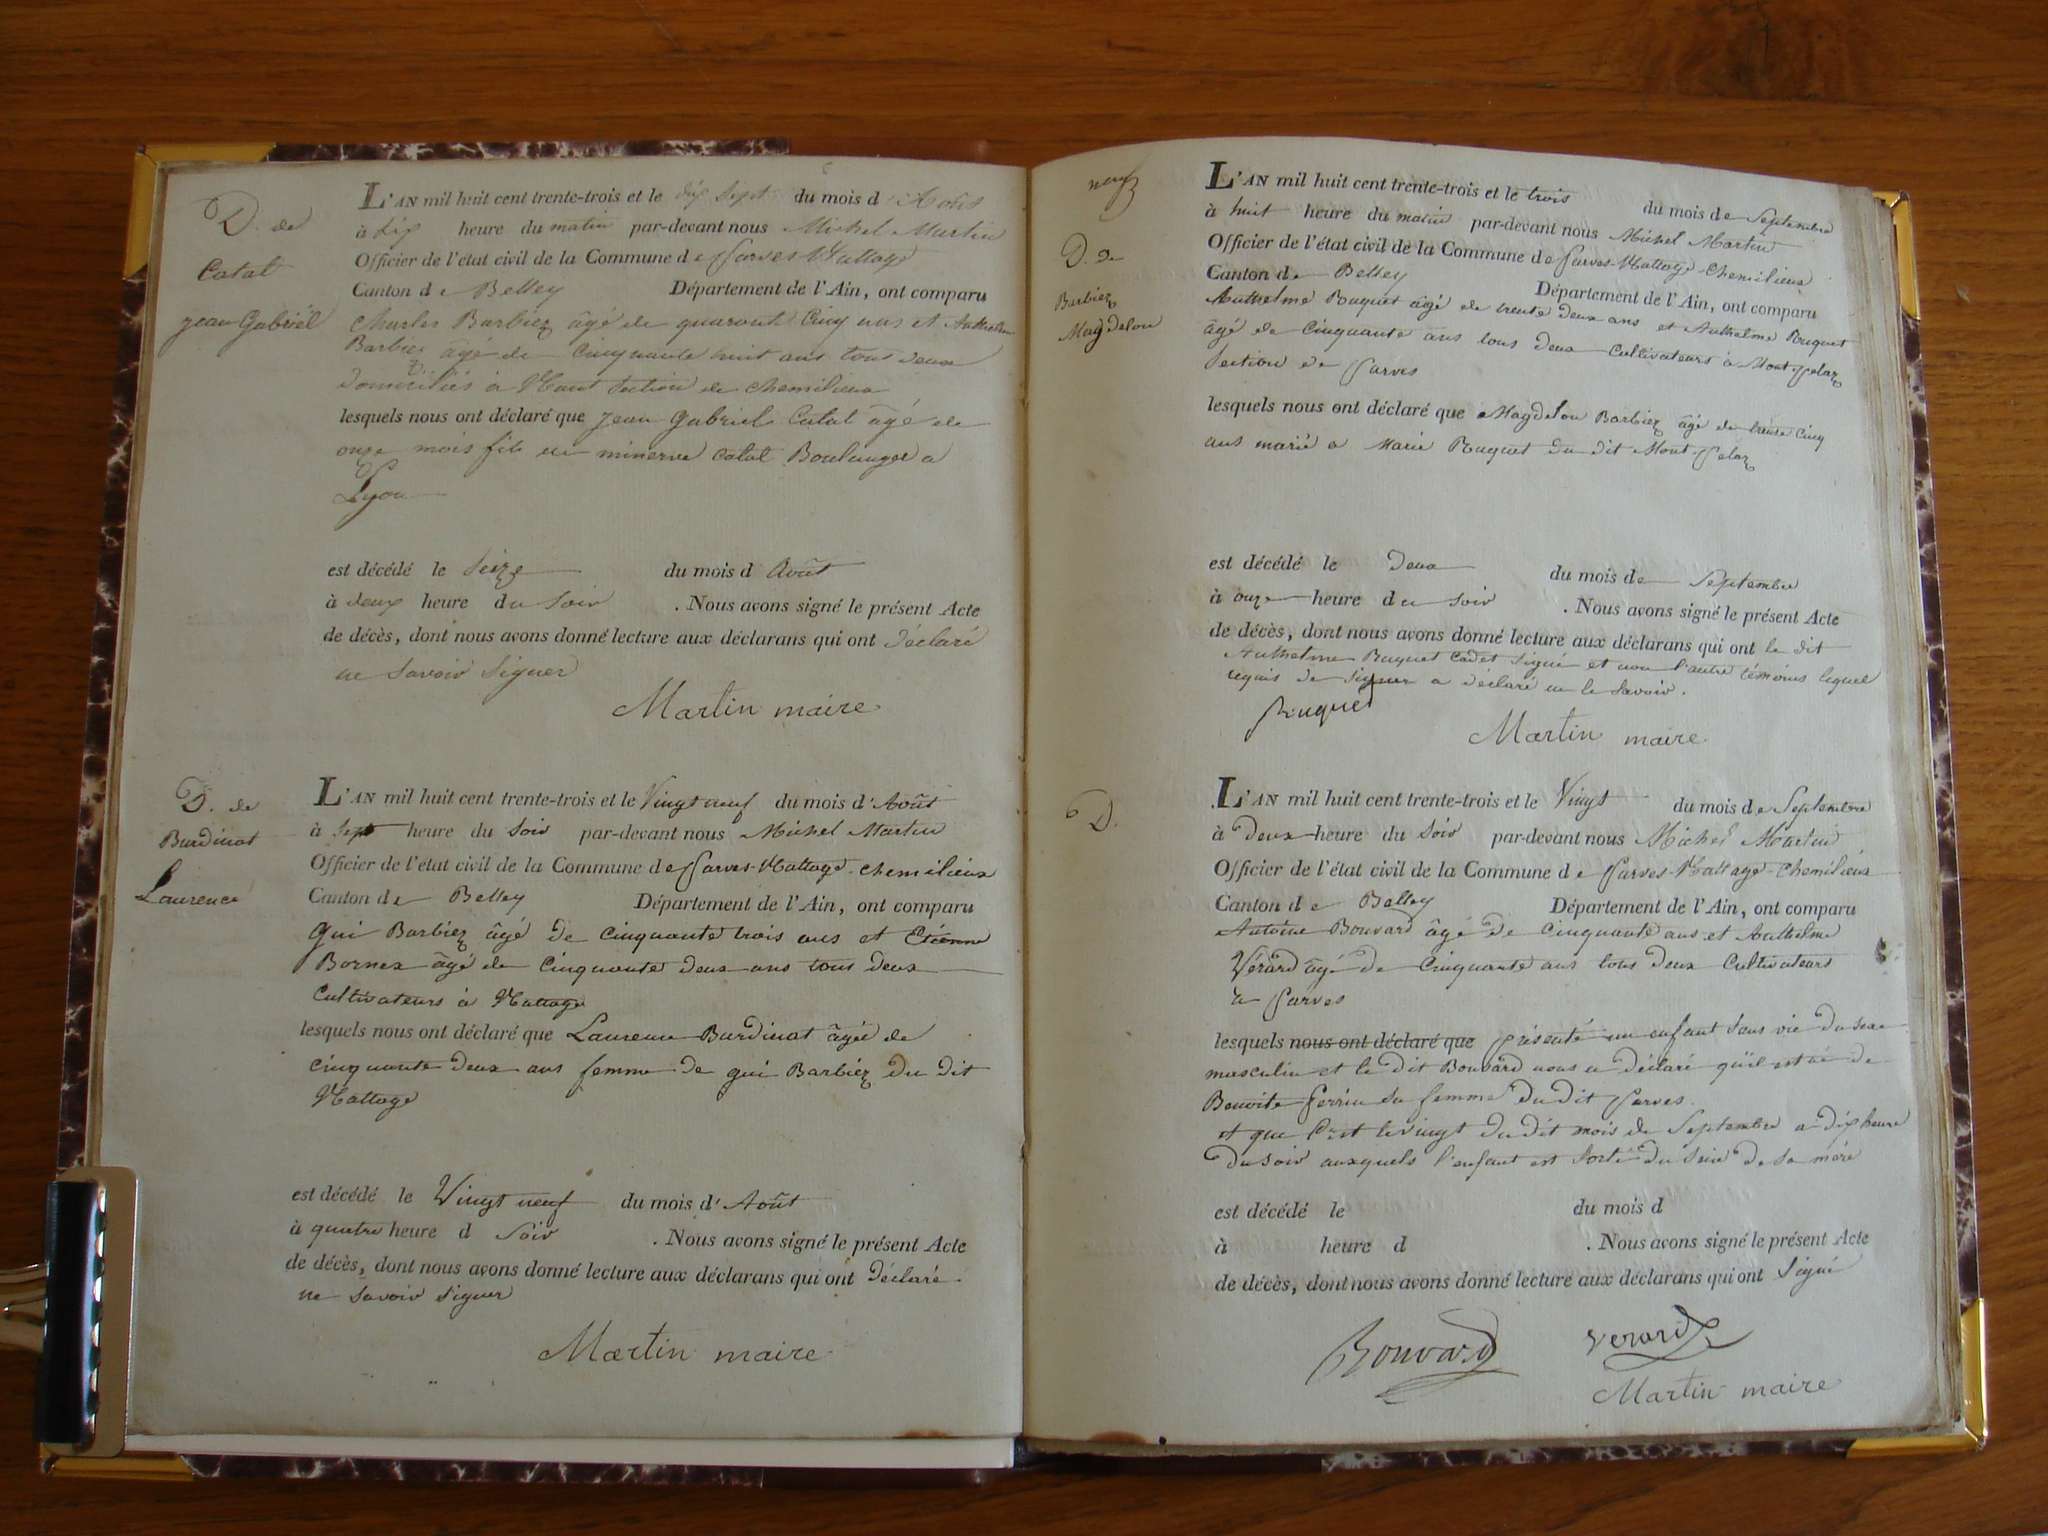 D. de
Catat
Jean Gabriël
L'AN mil huit cent trente-trois et le dix sept du mois d Août
à dix heure du matin par-devant nous Michel Martin
Officier de l'état civil de la Commune de Parves-Nattage
Canton de Belley Département de l'Ain, ont comparu
Charles Barbiez âgé de quarante cinq ans et Anthelme
Barbiez âgé de cinquante huit ans tous deux
domiciliés à Nant Section de Chemilieux
lesquels nous ont déclaré que Jean Gabriel Catat âgé de
onze mois fils de minerve Catat Boulanger a
Lyon
est décédé le Seize du mois d Août
à deux heure du Soir . Nous avons signé le présent Acte
de décès, dont nous avons donné lecture aux déclarans qui ont déclaré
ne savoir signer
Martin maire
D. de
Burdinat
Laurence
L'AN mil huit cent trente-trois et le Vingt neuf du mois d'Août
à Sept heure du Soir par-devant nous Michel Martin
Officier de l'état civil de la Commune de Parves-Nattage-Chemilieux
Canton de Belley Département de l'Ain, ont comparu
Gui Barbiez âgé De Cinquante trois ans et Etienne
Bornex âgé de Cinquante deux ans tous deux
Cultivateurs à Nattage
lesquels nous ont déclaré que Laurence Burdinat âgée de
cinquante Deux ans femme de gui Barbiez Du Dit
Nattage
est décédé le Vingt neuf du mois d'Août
à quatre heure d Soir . Nous avons signé le présent Acte
de décès, dont nous avons donné lecture aux déclarans qui ont Déclaré
ne Savoir Signer
Martin maire
neuf
D. de
Barbiez
Magdelon
L'AN mil huit cent trente-trois et le trois du mois de Septembre
à huit heure du matin par-devant nous Michel Martin
Officier de l'état civil de la Commune de Parves-Nattage-Chemilieux
Canton de Belley Département de l'Ain, ont comparu
Anthelme Ruquet âgé de trente deux ans et Anthelme Ruquet
âgé de Cinquante ans tous deux Cultivateurs à Mont-Pelaz
Section de Parves
lesquels nous ont déclaré que Magdelon Barbiez âgé de trente Cinq
ans marié a Marie Ruquet du dit Mont-Pelaz
est décédé le Deux du mois de Septembre
à onze heure du soir . Nous avons signé le présent Acte
de décès, dont nous avons donné lecture aux déclarans qui ont le dit
Anthelme Ruquet Cadet Signé et non l'autre témoins lequel
requis de Signer a déclaré ne le Savoir.
Ruquet
Martin maire
D.
L'AN mil huit cent trente-trois et le Vingt du mois de Septembre
à Deux heure du Soir par-devant nous Michel Martin
Officier de l'état civil de la Commune de Parves-Nattage-Chemilieux
Canton de Belley Département de l'Ain, ont comparu
Antoine Bouvard âgé De Cinquante ans et Anthelme
Vérard âgé De Cinquante ans tous Deux Cultivateurs
a Parves
lesquels nous ont déclaré que présenté un enfant Sans vie Du Sexe
masculin et le Dit Bouvard nous a Déclaré qu'il est né de
Benoite Perrin Sa femme Du Dit Parves.
et que C'est le vingt Du Dit mois de Septembre a Dix heure
Du Soir auxquels l'enfant est Sorti Du Sein De Sa mère
est décédé le du mois d
à heure d . Nous avons signé le présent Acte
de décès, dont nous avons donné lecture aux déclarans qui ont Signé
Bouvard Verard
Martin maire